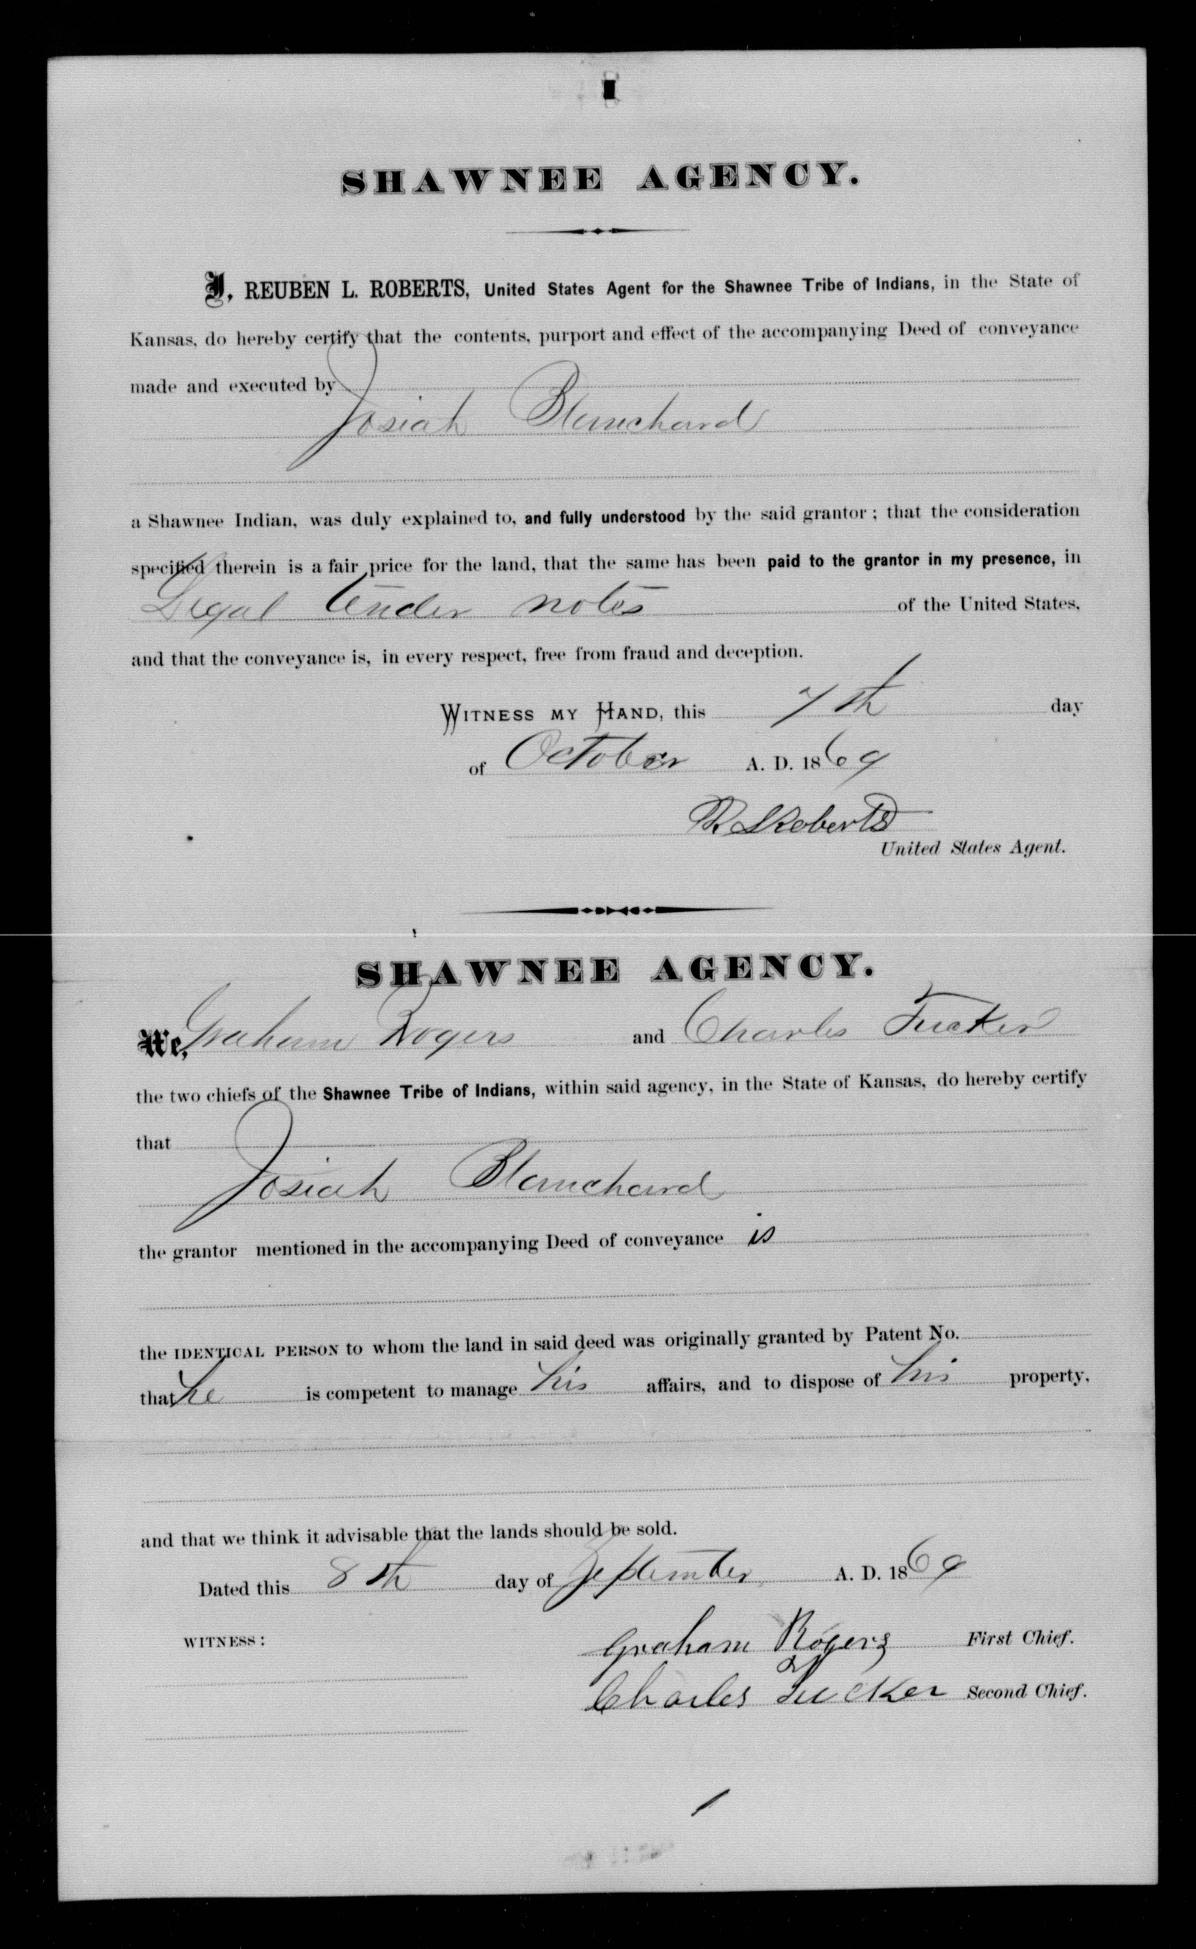 SHAWNEE AGENCY.
I, REUBEN L. ROBERTS, United States Agent for the Shawnee Tribe of Indians, in the State of
Kansas, do hereby certify that the contents, purport and effect of the accompanying Deed of conveyance
made and executed by
Josiah Blanchard
a Shawnee Indian, was duly explained to, and fully understood by the said grantor; that the consideration
specified therein is a fair price for the land, that the same has been paid to the grantor in my presence, in
Legal tender notes of the United States,
and that the conveyance is, in every respect, free from fraud and deception.
WITNESS MY HAND, this 7th day
of October A. D. 1869
R L Roberts
United States Agent.
SHAWNEE AGENCY.
We, Graham Rogers and Charles Tucker
the two chiefs of the Shawnee Tribe of Indians, within said agency, in the State of Kansas, do hereby certify
that
Josiah Blanchard
the grantor mentioned in the accompanying Deed of conveyance is
the IDENTICAL PERSON to whom the land in said deed was originally granted by Patent No.
that he is competent to manage his affairs, and to dispose of his property,
and that we think it advisable that the lands should be sold.
Dated this 8th day of September A. D. 1869
WITNESS: Graham Rogers First Chief.
Charles Tucker Second Chief.